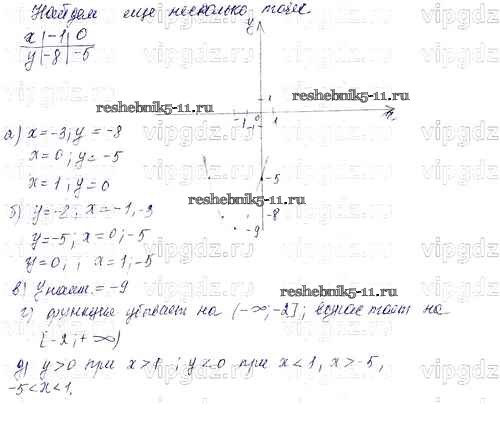 Найдем еще несколько точек.
x | -1 | 0
y | -8 | -5
y
1
-1 0 1
-1
x
-5
-8
-9
а) x = -3; y = -8
x = 0; y = -5
x = 1; y = 0
б) y = -8; x = -1, -3
y = -5; x = 0; -5
y = 0, ; x = 1, -5
в) y наим. = -9
г) функция убывает на (-∞; -2]; возрастает на
[-2; +∞)
д) y > 0 при x > 1 ; y < 0 при x < 1, x > -5,
-5 < x < 1.
reshebnik5-11.ru
reshebnik5-11.ru
reshebnik5-11.ru
reshebnik5-11.ru
vipgdz.ru